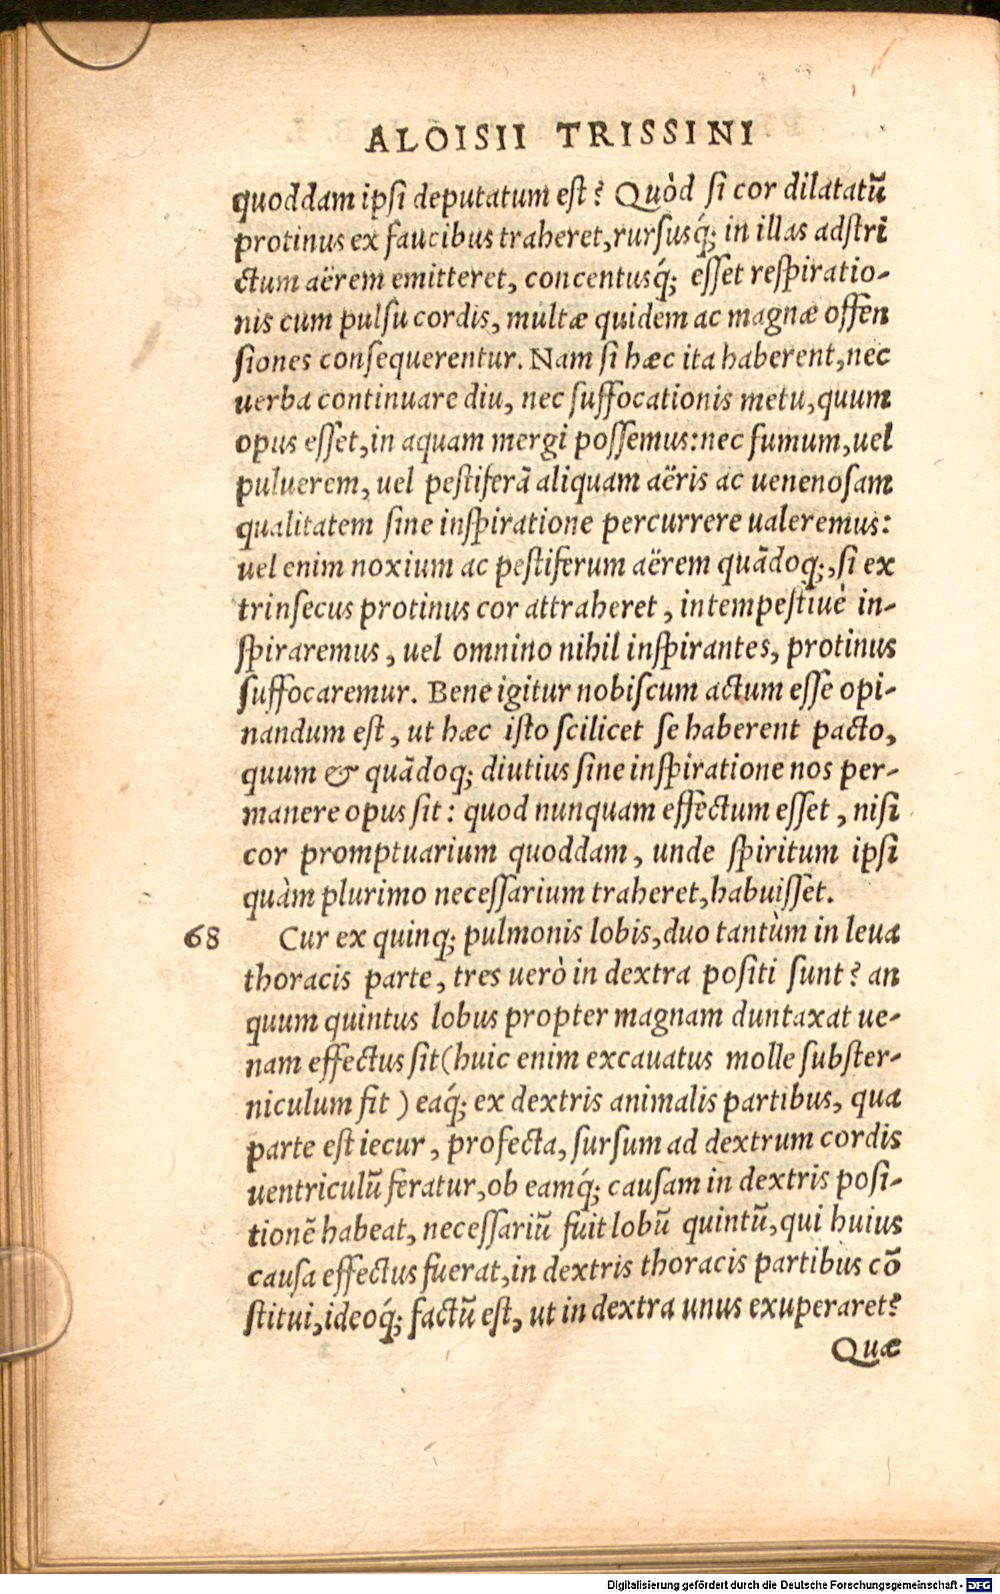 ALOISII TRISSINI
quoddam ipsi deputatum est? Quòd si cor dilatatũ
protinus ex faucibus traheret, rursusq́; in illas adstri
ctum aërem emitteret, concentusq́; esset respiratio-
nis cum pulsu cordis, multæ quidem ac magnæ offen
siones consequerentur. Nam si hæc ita haberent, nec
uerba continuare diu, nec suffocationis metu, quum
opus esset, in aquam mergi possemus: nec fumum, uel
puluerem, uel pestiferã aliquam aëris ac uenenosam
qualitatem sine inspiratione percurrere ualeremus:
uel enim noxium ac pestiferum aërem quãdoq;, si ex
trinsecus protinus cor attraheret, intempestiuè in-
spiraremus, uel omnino nihil inspirantes, protinus
suffocaremur. Bene igitur nobiscum actum esse opi-
nandum est, ut hæc isto scilicet se haberent pacto,
quum & quãdoq; diutius sine inspiratione nos per-
manere opus sit: quod nunquam effectum esset, nisi
cor promptuarium quoddam, unde spiritum ipsi
quàm plurimo necessarium traheret, habuisset.
68 Cur ex quinq; pulmonis lobis, duo tantùm in leua
thoracis parte, tres uerò in dextra positi sunt? an
quum quintus lobus propter magnam duntaxat ue-
nam effectus sit (huic enim excauatus molle subster-
niculum fit) eaq́; ex dextris animalis partibus, qua
parte est iecur, profecta, sursum ad dextrum cordis
uentriculũ feratur, ob eamq́; causam in dextris posi-
tionẽ habeat, necessariũ fuit lobũ quintũ, qui huius
causa effectus fuerat, in dextris thoracis partibus cõ
stitui, ideoq́; factũ est, ut in dextra unus exuperaret?
Quæ
Digitalisierung gefördert durch die Deutsche Forschungsgemeinschaft - DFG